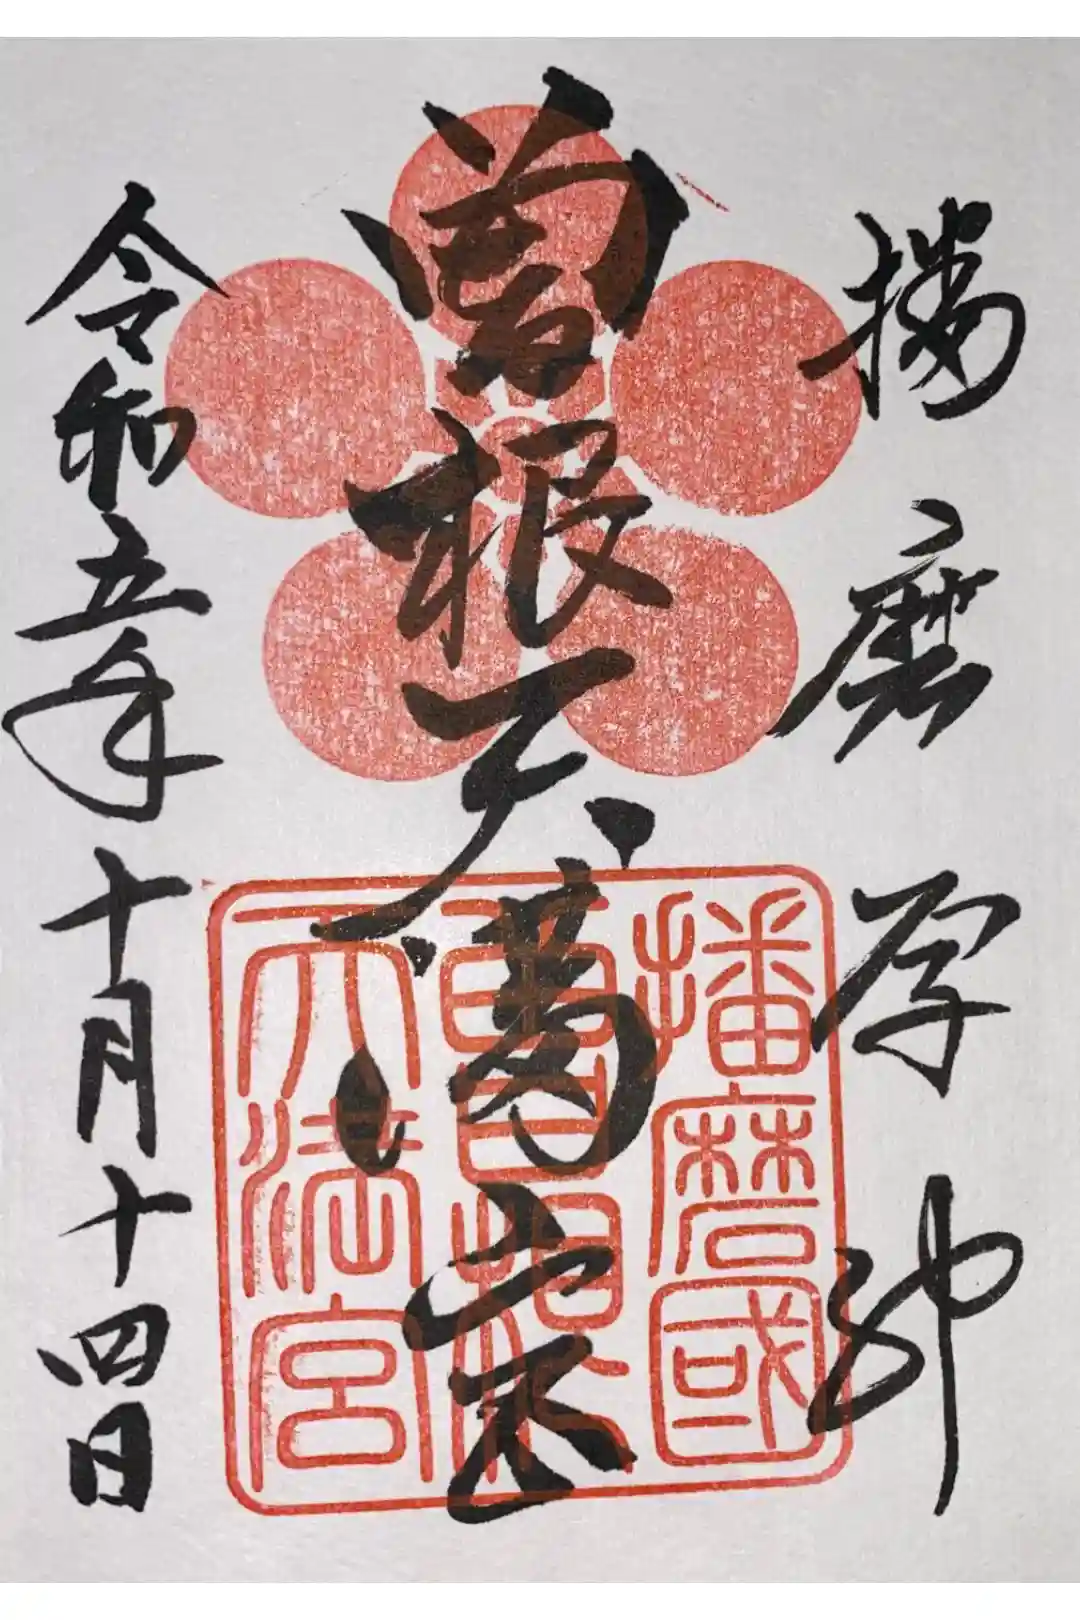 播磨学師
曽根天満宮
令和五年十月十四日
播磨國
曽根
天満宮